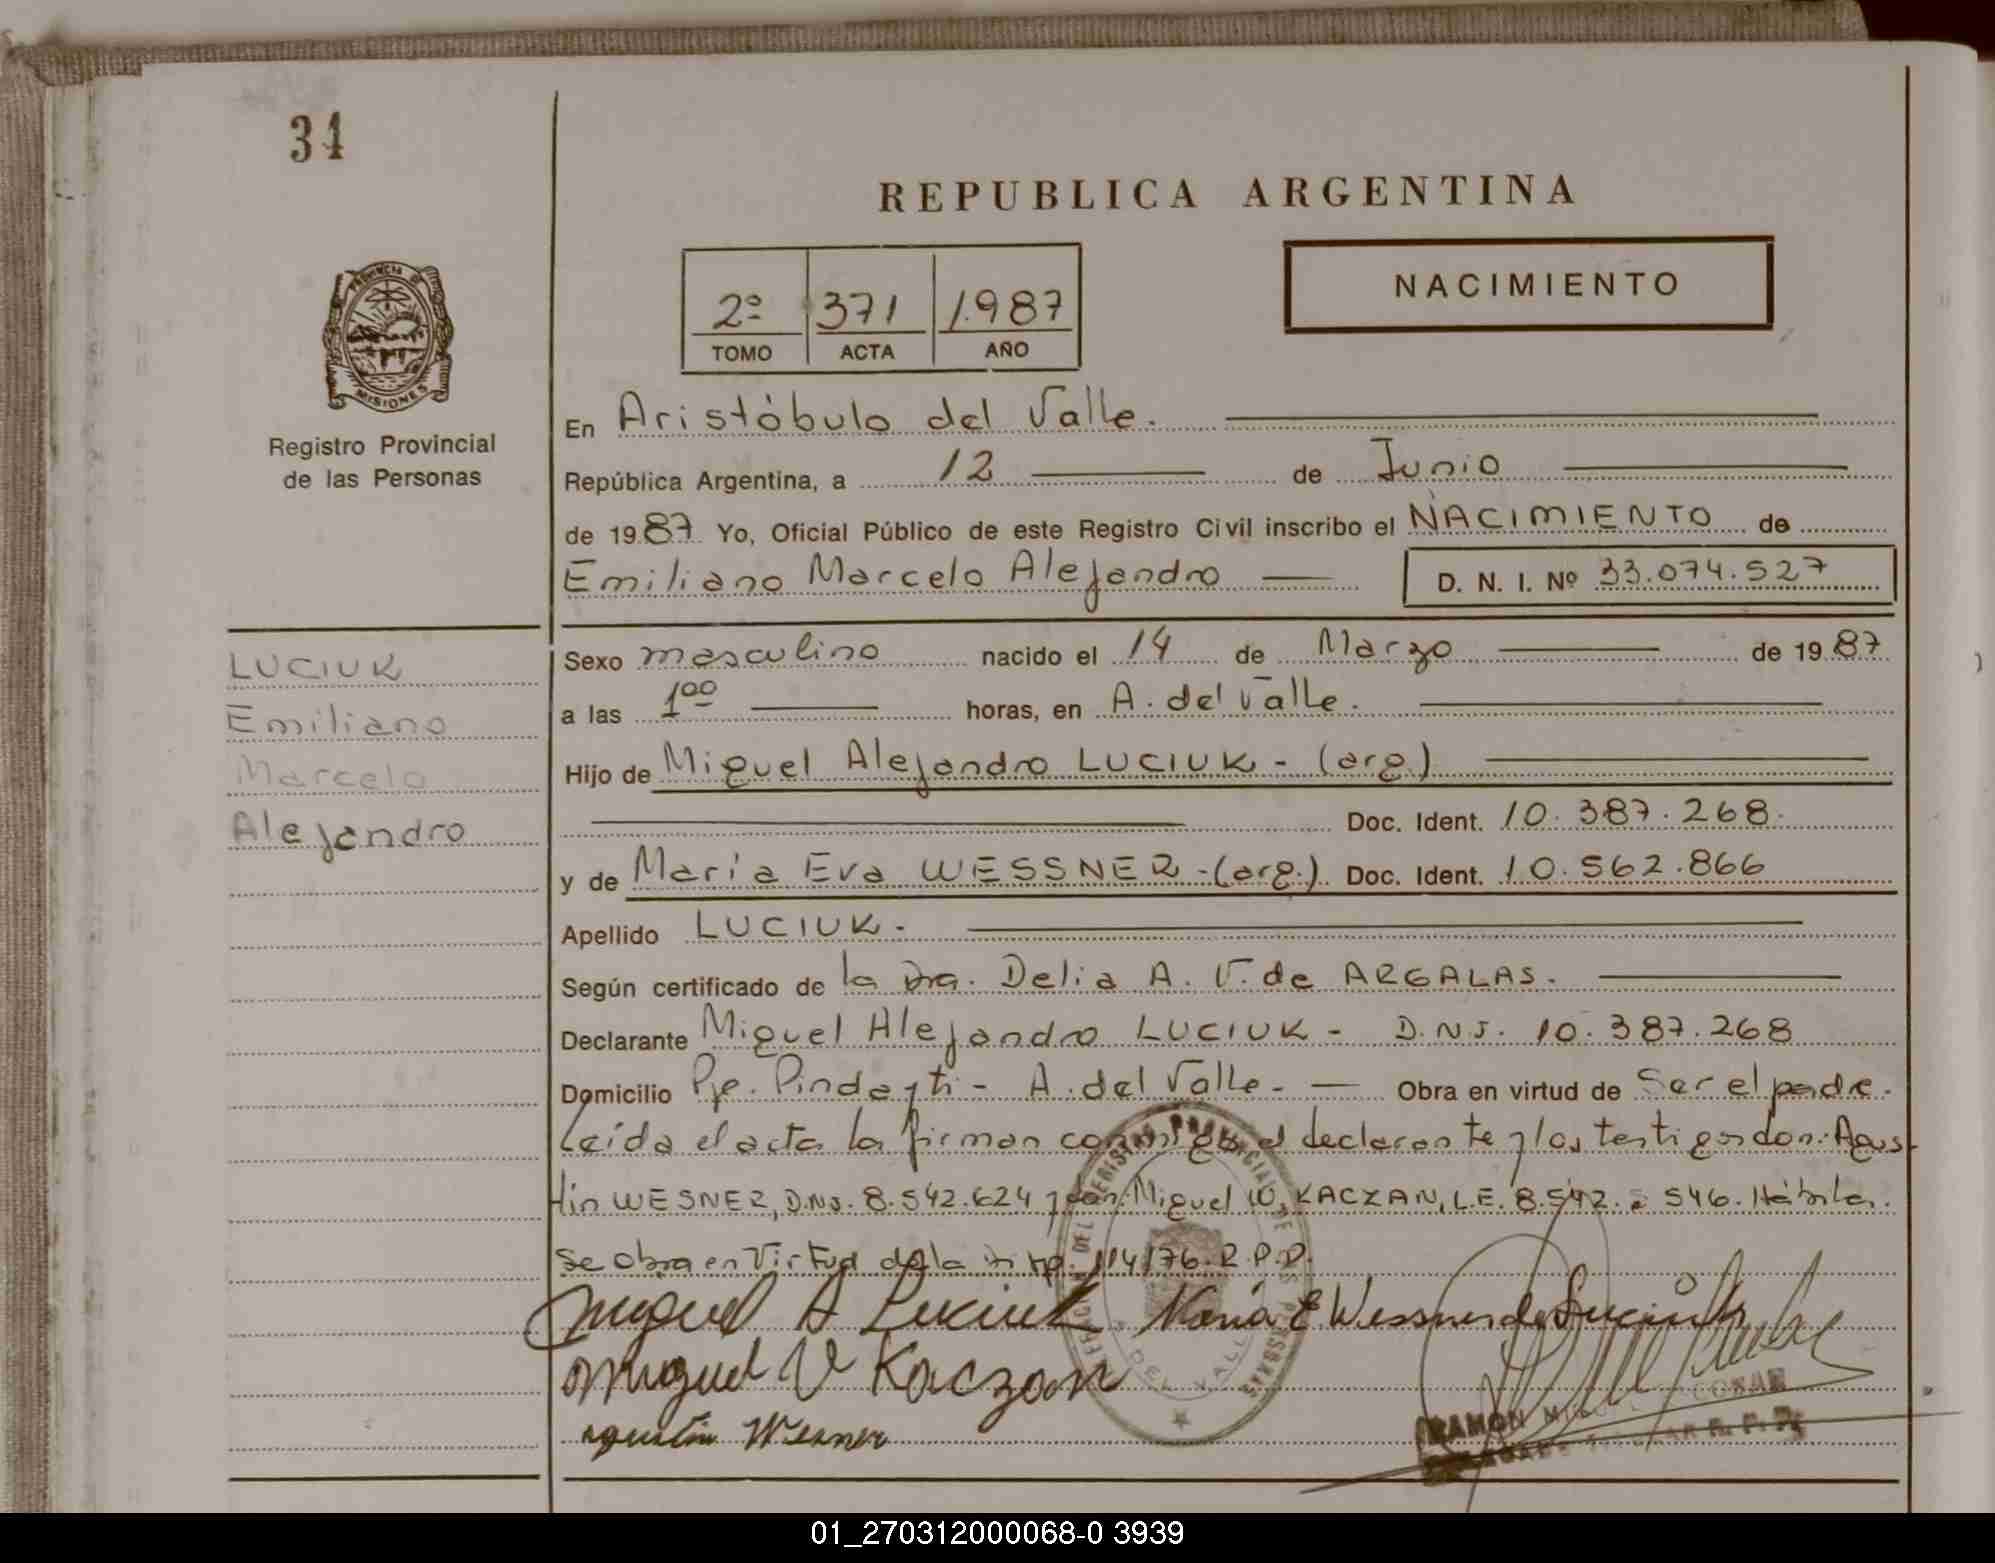 34
REPUBLICA ARGENTINA
NACIMIENTO
2º 371 1.987
TOMO ACTA AÑO
PROVINCIA DE
MISIONES
Registro Provincial
de las Personas
En Aristóbulo del Valle.
República Argentina, a 12 de Junio
de 1987 Yo, Oficial Público de este Registro Civil inscribo el NACIMIENTO de
Emiliano Marcelo Alejandro D. N. I. Nº 33.074.527
LUCIUK
Emiliano
Marcelo
Alejandro
Sexo masculino nacido el 14 de Marzo de 1987
a las 1 00 horas, en A. del Valle.
Hijo de Miguel Alejandro LUCIUK - (arg.)
Doc. Ident. 10.387.268.
y de María Eva WESSNER - (arg.) Doc. Ident. 10.562.866
Apellido LUCIUK.
Según certificado de la Dra. Delia A. V. de ARGALAS.
Declarante Miguel Alejandro LUCIUK - D.N.I. 10.387.268
Domicilio Pje. Pindayti - A. del Valle - Obra en virtud de Ser el padre.
Leída el acta la firman conmigo el declarante y los testigos don: Agus-
tin WESNER, D.N.I. 8.542.624 y don: Miguel W. KACZAN, L.E. 8.542.546. Hábiles.
Se obra en Virtud de la 114/76. R.P.P.
Miguel A Luciuk María E Wessner de Luciuk
Miguel V Kaczan
Agustin Wesner
DEL VALLE
RAMON
01_270312000068-0 3939